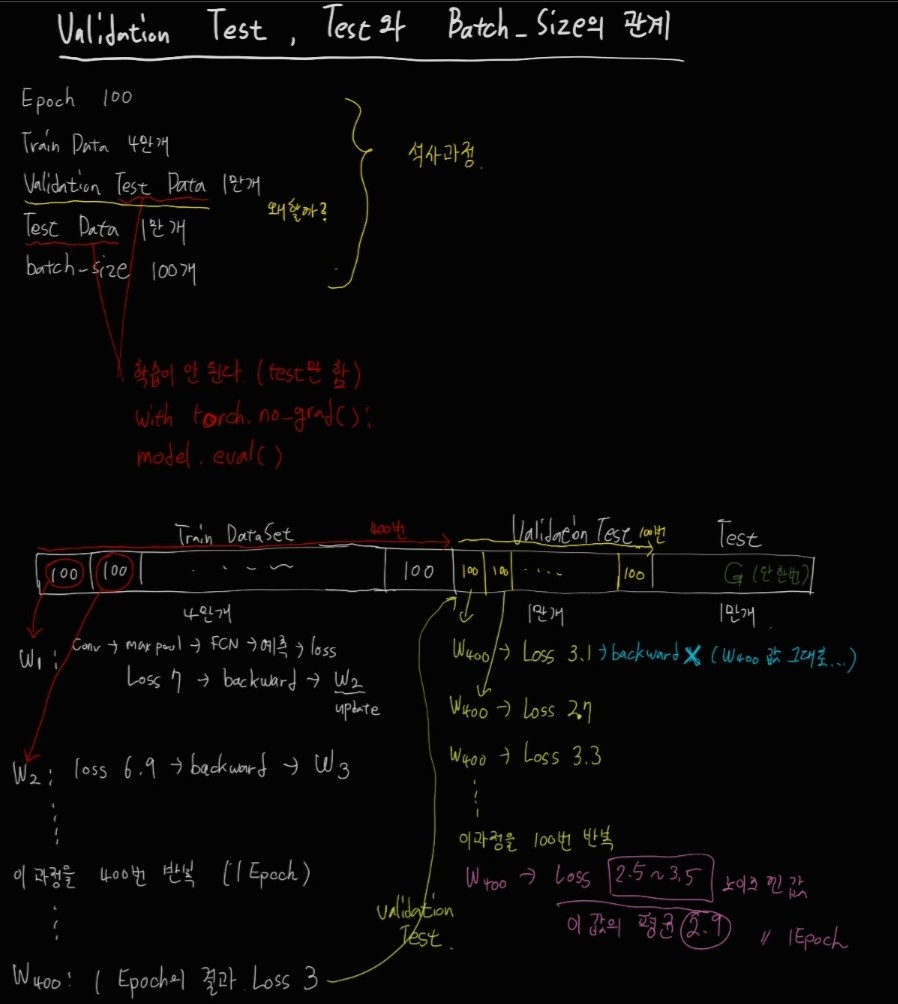 Validation Test, Test와 Batch_Size의 관계
Epoch 100
Train Data 4만개
Validation Test Data 1만개
왜할까?
Test Data 1만개
batch-size 100개
석사과정.
학습이 안 된다. (test만 함)
with torch.no_grad():
model.eval()
Train DataSet 400번 Validation Test 100번 Test
100 100 · · ~ ~ 100 100 100 · · · · 100 G (안한번)
4만개 1만개 1만개
W1: Conv → maxpool → FCN → 예측 → loss
Loss 7 → backward → W2
update
W2: loss 6.9 → backward → W3
이 과정을 400번 반복 (1 Epoch)
W400: 1 Epoch의 결과 Loss 3
Validation
Test.
W400 → Loss 3.1 → backward X (W400 값 그대로...)
W400 → Loss 2.7
W400 → Loss 3.3
이과정을 100번 반복
W400 → Loss 2.5~3.5 노이즈 낀 값
이 값의 평균 2.9 〃 1Epoch